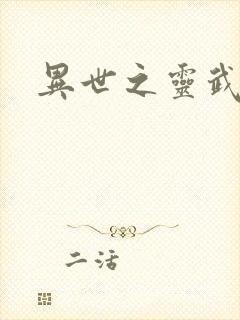 異世之靈武
二活